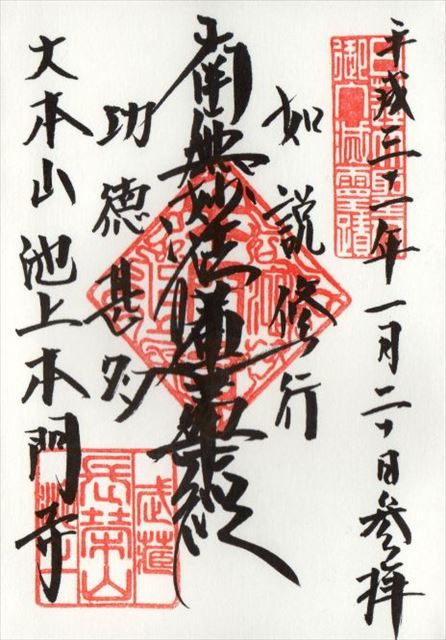 平成三十一年一月二十日参拝
日蓮大聖人
御入滅霊蹟
如説修行
南無妙法蓮華経
功徳甚多
大本山池上本門寺
武蔵
長栄山
池上